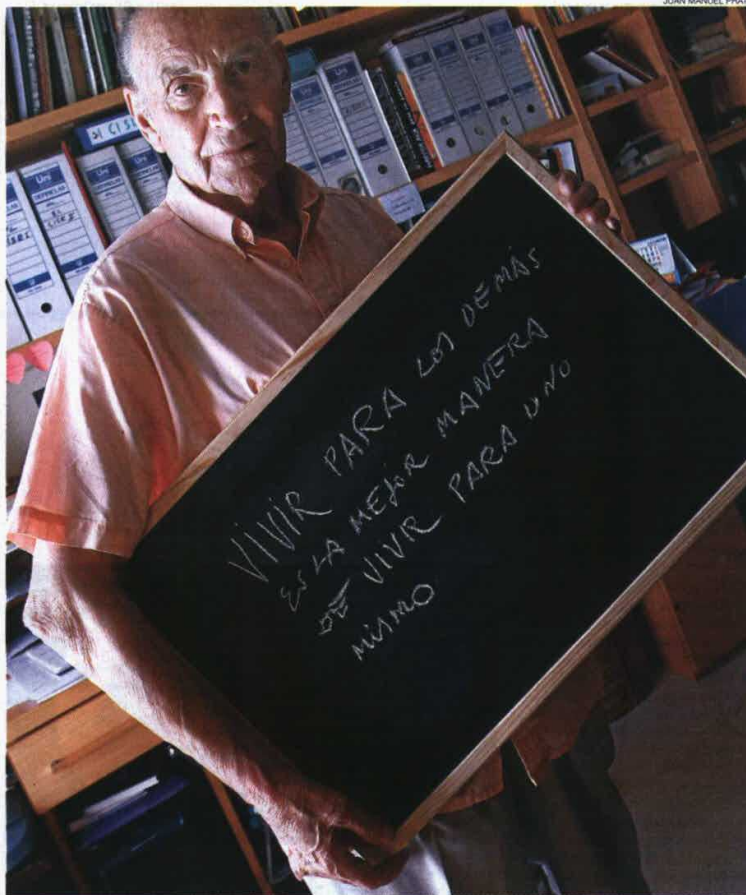 JUAN MANUEL PRAT
Uni
Uni
Uni
VIVIR PARA LOS DEMÁS
ES LA MEJOR MANERA
DE VIVIR PARA UNO
MISMO